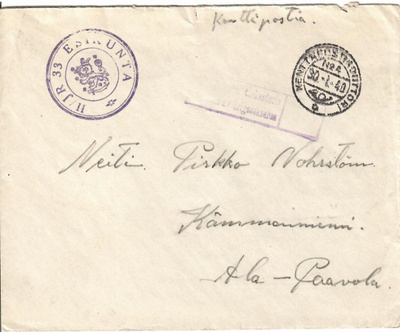 Kenttäpostia.
II/JR 33 ESIKUNTA
KENTTÄPOSTIKONTTORI
No 2
30.1.40
Neiti. Pirkko Vohrström.
Kämmenniemi.
Ala-Paavola.